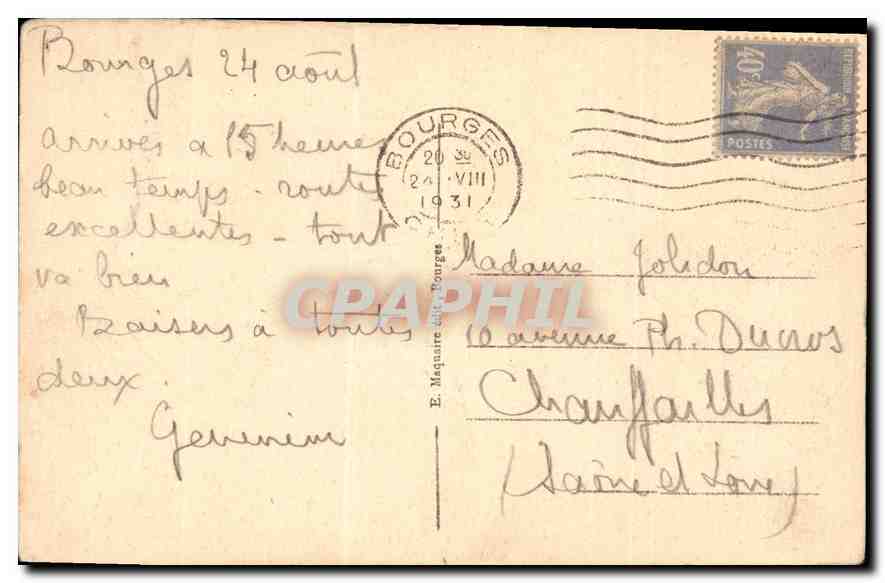 Bourges 24 août
arrivés à 15 heures
beau temps - routes
excellentes - tout
va bien
Baisers à toutes
deux.
BOURGES
20 30
24 VIII
1931
REPUBLIQUE FRANÇAISE
40c
POSTES
E. Maquaire édit., Bourges
CPAPHIL
Madame Jolidon
10 avenue Ph. Ducros
Chauffailles
(Saône et Loire)